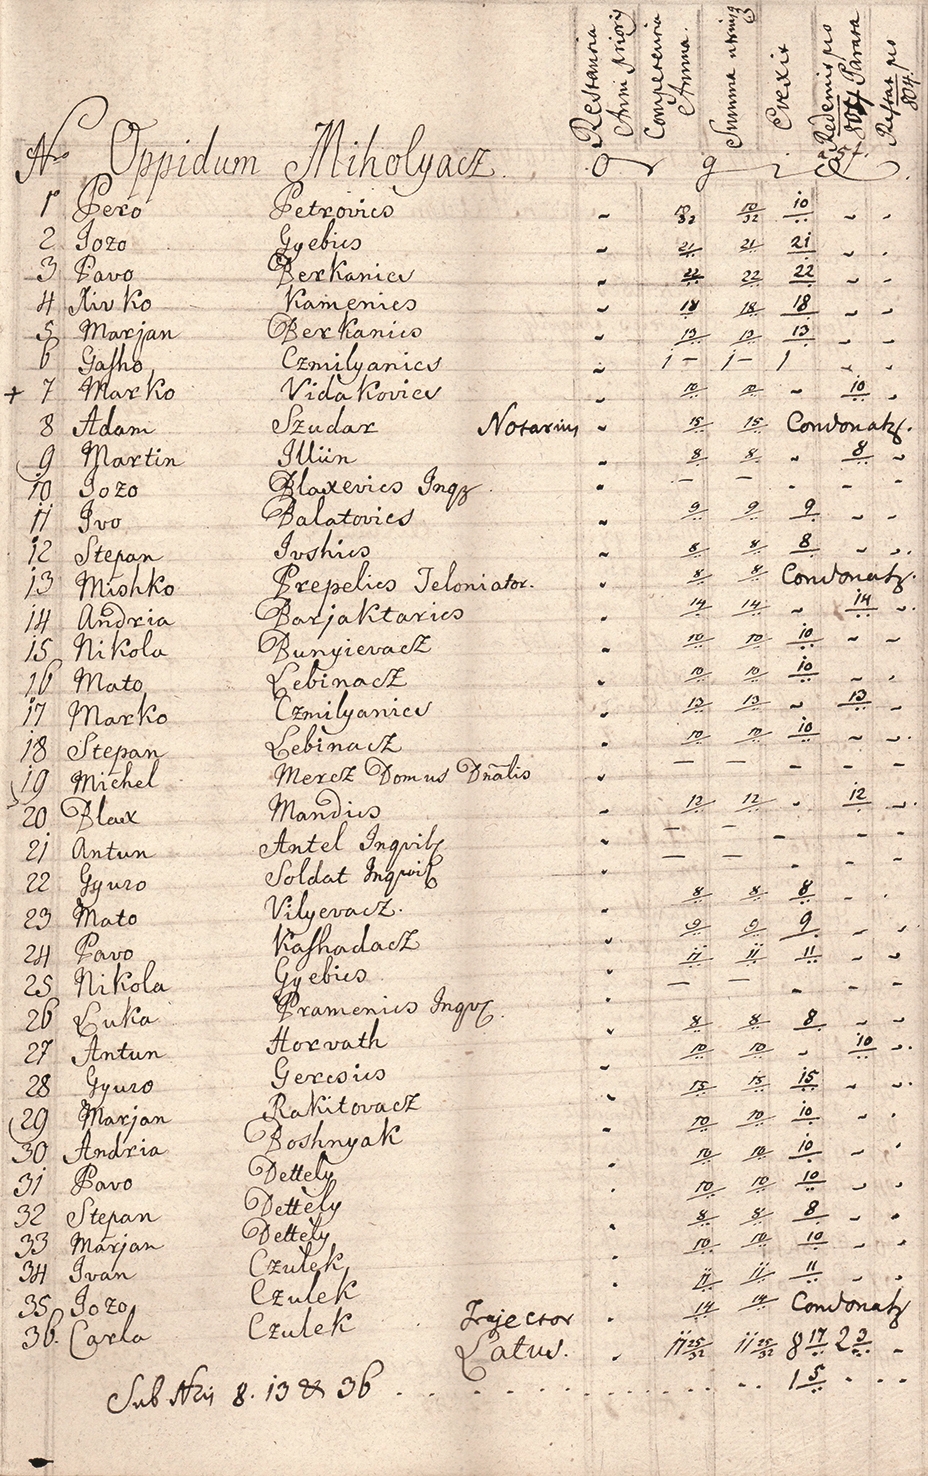 Restantia Anni prioris
Competentia Annua.
Summa utriusq
Evexit
Redemit pro 804 Parata
Restat pro 804.
Nr Oppidum Miholyacz.
1 Pero Petrovics - 10/32 10/32 10 - -
2 Jozo Gyebics - 21 21 21 - -
3 Pavo Berkanics - 22 22 22 - -
4 Xivko Kamenics - 18 18 18 - -
5 Marjan Berkanics - 13 13 13 - -
6 Gasho Czmilyanics - 1 - 1 - 1 - -
+ 7 Marko Vidakovics - 10 10 - 10 -
8 Adam Szudar Notarius - 15 15 Condonatz.
9 Martin Illiin - 8 8 - 8 -
10 Jozo Blaxevics Inqz - - - - - -
11 Ivo Balatovics - 9 9 9 - -
12 Stepan Ivshics - 8 8 8 - -
13 Mishko Prepelics Teloniator. - 8 8 Condonatz.
14 Andria Barjaktarics - 14 14 - 14 -
15 Nikola Bunyievacz - 10 10 10 - -
16 Mato Lebinacz - 10 10 10 - -
17 Marko Czmilyanics - 13 13 - 13 -
18 Stepan Lebinacz - 10 10 10 - -
19 Michel Mercz Domus Dnalis - - - - - -
20 Blax Mandics - 12 12 - 12 -
21 Antun Antel Inqvilz - - - - - -
22 Gyuro Soldat Inqvilz - - - - - -
23 Mato Vilyevacz. - 8 8 8 - -
24 Pavo Kashadacz - 9 9 9 - -
25 Nikola Gyebics - 11 11 11 - -
26 Luka Pramenics Inqvz. - - - - - -
27 Antun Horvath - 8 8 8 - -
28 Gyuro Gercsics - 10 10 - 10 -
29 Marjan Rakitovacz - 15 15 15 - -
30 Andria Boshnyak - 10 10 10 - -
31 Pavo Dettely - 10 10 10 - -
32 Stepan Dettely - 10 10 10 - -
33 Marjan Dettely - 8 8 8 - -
34 Ivan Czulek - 10 10 10 - -
35 Jozo Czulek - 11 11 11 - -
36. Carla Czulek Trajector - 14 14 Condonatz
Latus. - 11 25/32 11 25/32 8 17 2 3 -
Sub Nris 8. 13 & 36 . . . . . . . . . . . . 1 5 . . .